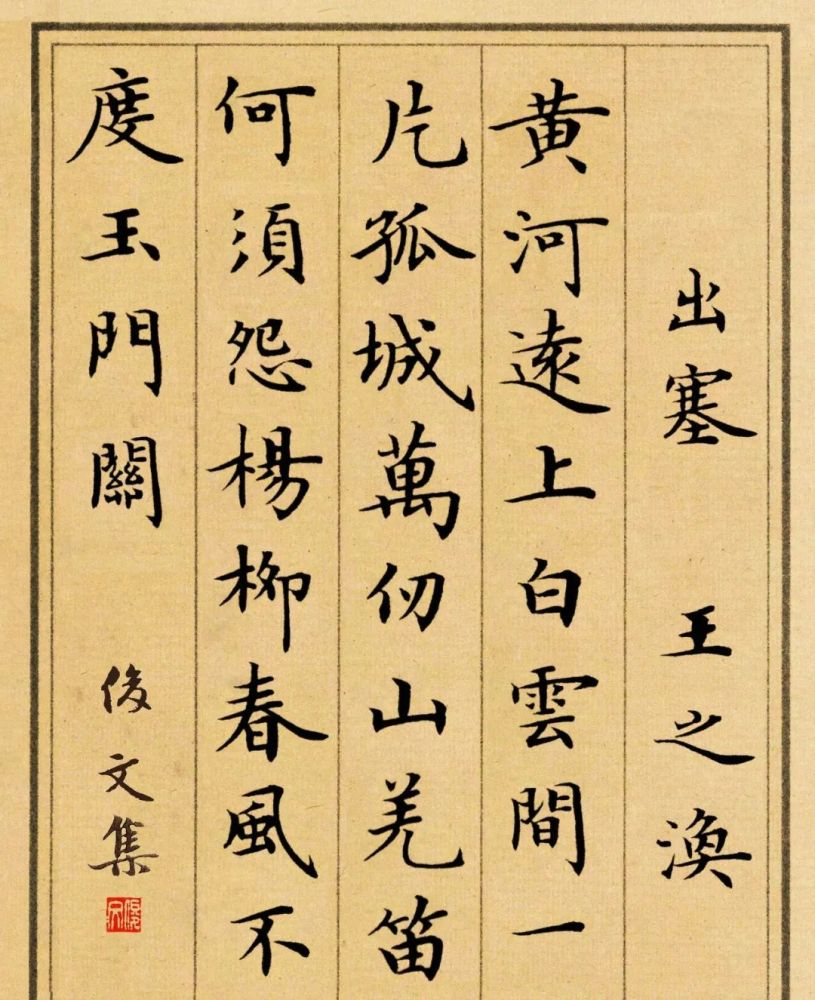 出塞 王之渙
黄河遠上白雲間一
片孤城萬仞山羌笛
何須怨楊柳春風不
度玉門關
俊文集